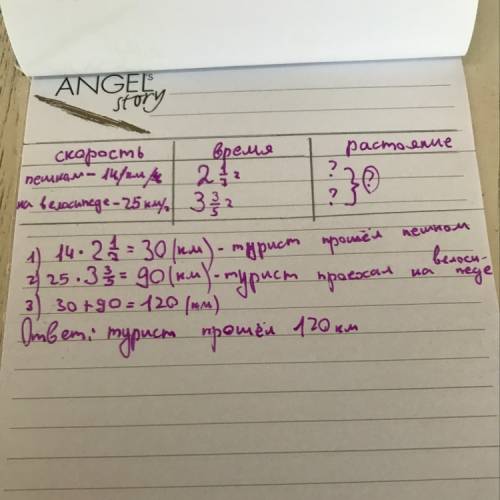 ANGEL's
story
скорость время растояние
пешком – 14/км/ч 2 1/7 ч ?
на велосипеде – 25 км/ч 3 3/5 ч ? } ?
1) 14 · 2 1/7 = 30 (км) - турист прошёл пешком
2) 25 · 3 3/5 = 90 (км) - турист проехал на велоси-
педе
3) 30 + 90 = 120 (км)
Ответ: турист прошёл 120 км